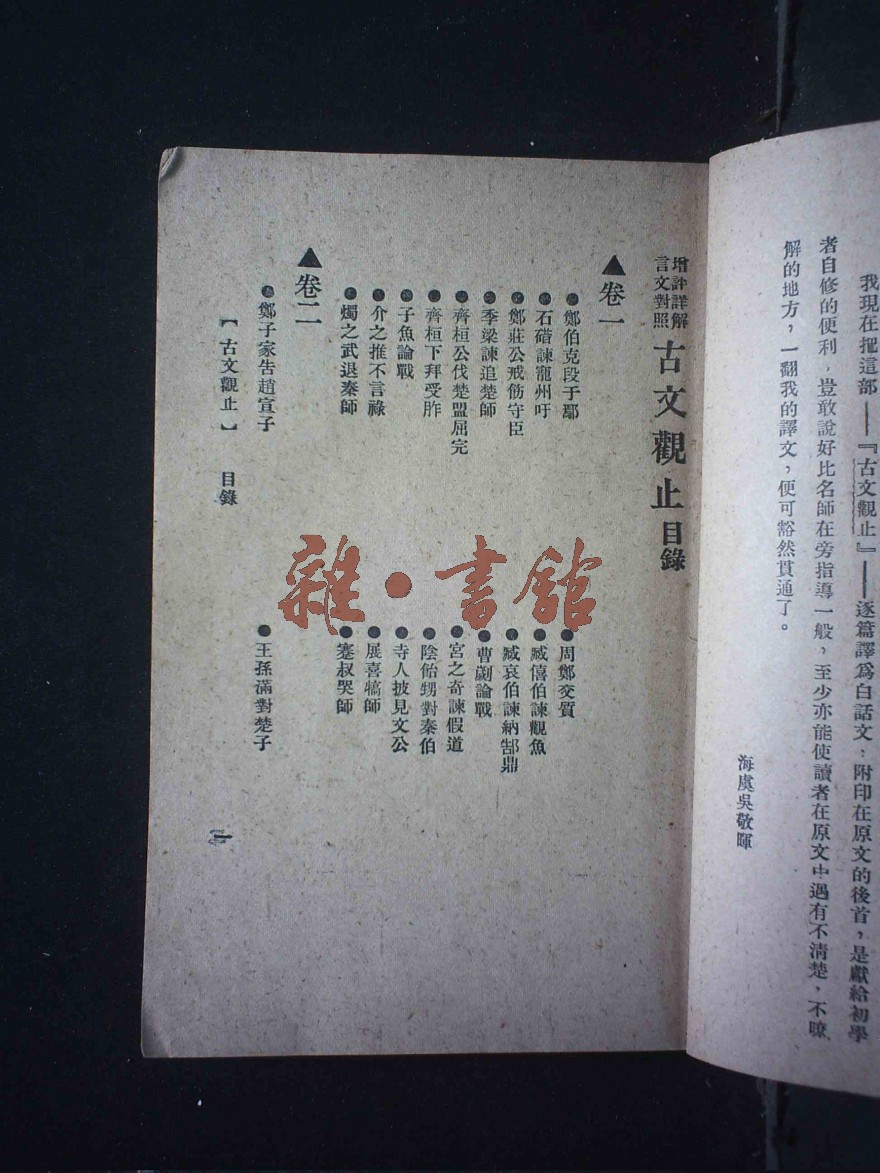 我現在把這部——『古文觀止』——逐篇譯爲白話文：附印在原文的後首，是獻給初學
者自修的便利，豈敢說好比名師在旁指導一般，至少亦能使讀者在原文中遇有不清楚，不嘹
解的地方，一翻我的譯文，便可豁然貫通了。
海虞吳敬暉
增評詳解
言文對照
古文觀止目錄
▲卷一
●鄭伯克段于鄢
●周鄭交質
●石碏諫寵州吁
●臧僖伯諫觀魚
●鄭莊公戒飭守臣
●臧哀伯諫納郜鼎
●季梁諫追楚師
●曹劌論戰
●齊桓公伐楚盟屈完
●宮之奇諫假道
●齊桓下拜受胙
●陰飴甥對秦伯
●子魚論戰
●寺人披見文公
●介之推不言祿
●展喜犒師
●燭之武退秦師
●蹇叔哭師
▲卷二
●鄭子家告趙宣子
●王孫滿對楚子
【古文觀止】 目錄
一
雜·書館